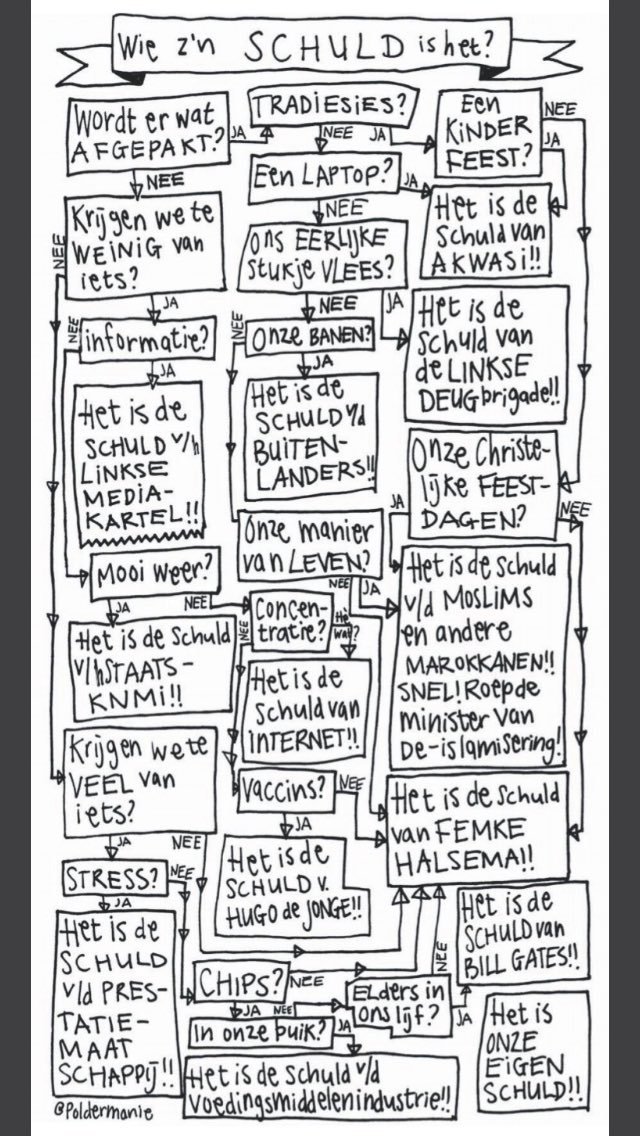 Wie z'n SCHULD is het?
Wordt er wat
AFGEPAKT?
JA
NEE
TRADIESIES?
NEE
JA
Een
KINDER
FEEST?
NEE
JA
Een LAPTOP?
JA
NEE
Het is de
Schuld van
AKWASI!!
Krijgen we te
WEINIG van
iets?
NEE
JA
Ons EERLIJKE
Stukje VLEES?
NEE
JA
Het is de
Schuld van
de LINKSE
DEUGbrigade!!
informatie?
NEE
JA
Onze BANEN?
NEE
JA
Het is de
SCHULD v/h
LINKSE
MEDIA-
KARTEL!!
Het is de
SCHULD v/d
BUITEN-
LANDERS!!
Onze Christe-
lijke FEEST-
DAGEN?
JA
NEE
Onze manier
van LEVEN?
NEE
JA
Het is de schuld
v/d MOSLIMS
en andere
MAROKKANEN!!
SNEL! Roep de
minister van
De-islamisering!
Mooi weer?
JA
NEE
Concen-
tratie?
NEE
Hè
wat?
Het is de Schuld
v/h STAATS-
KNMI!!
Het is de
Schuld van
INTERNET!!
Krijgen we te
VEEL van
iets?
JA
NEE
Vaccins?
NEE
JA
Het is de schuld
van FEMKE
HALSEMA!!
Het is de
SCHULD v.
HUGO de JONGE!!
STRESS?
NEE
JA
Het is de
SCHULD
v/d PRES-
TATIE-
MAAT
SCHAPPIJ!!
CHIPS?
NEE
JA
In onze buik?
NEE
JA
Elders in
ons lijf?
NEE
JA
Het is de
SCHULD van
BILL GATES!!
Het is de Schuld v/d
Voedingsmiddelenindustrie!!
Het is
ONZE
EiGEN
SCHULD!!
@Poldermanie